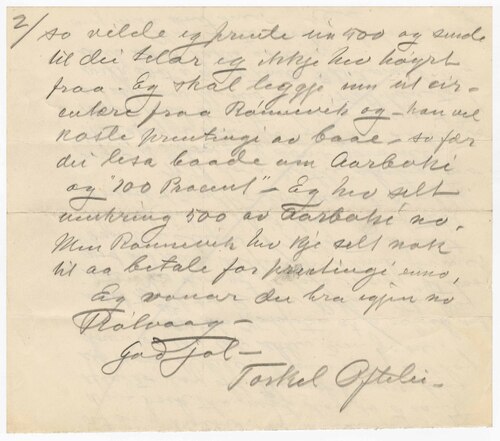 2/
so vilde eg prente um 500 og sende
til dei telar eg ikkje hev høyrt
fraa. Eg skal leggje inn eit cir-
culære fraa Rønnevik og - han vil
koste prentingi av baae - so fær
dei lesa baade um Aarboki
og "100 Procent" - Eg hev selt
umkring 500 av Aarboki no.
Men Rønnevik hev kje selt nok
til aa betale for prentingi enno.
Eg vonar du bra igjen no
Rølvaag -
God jol -
Torkel Oftelie -